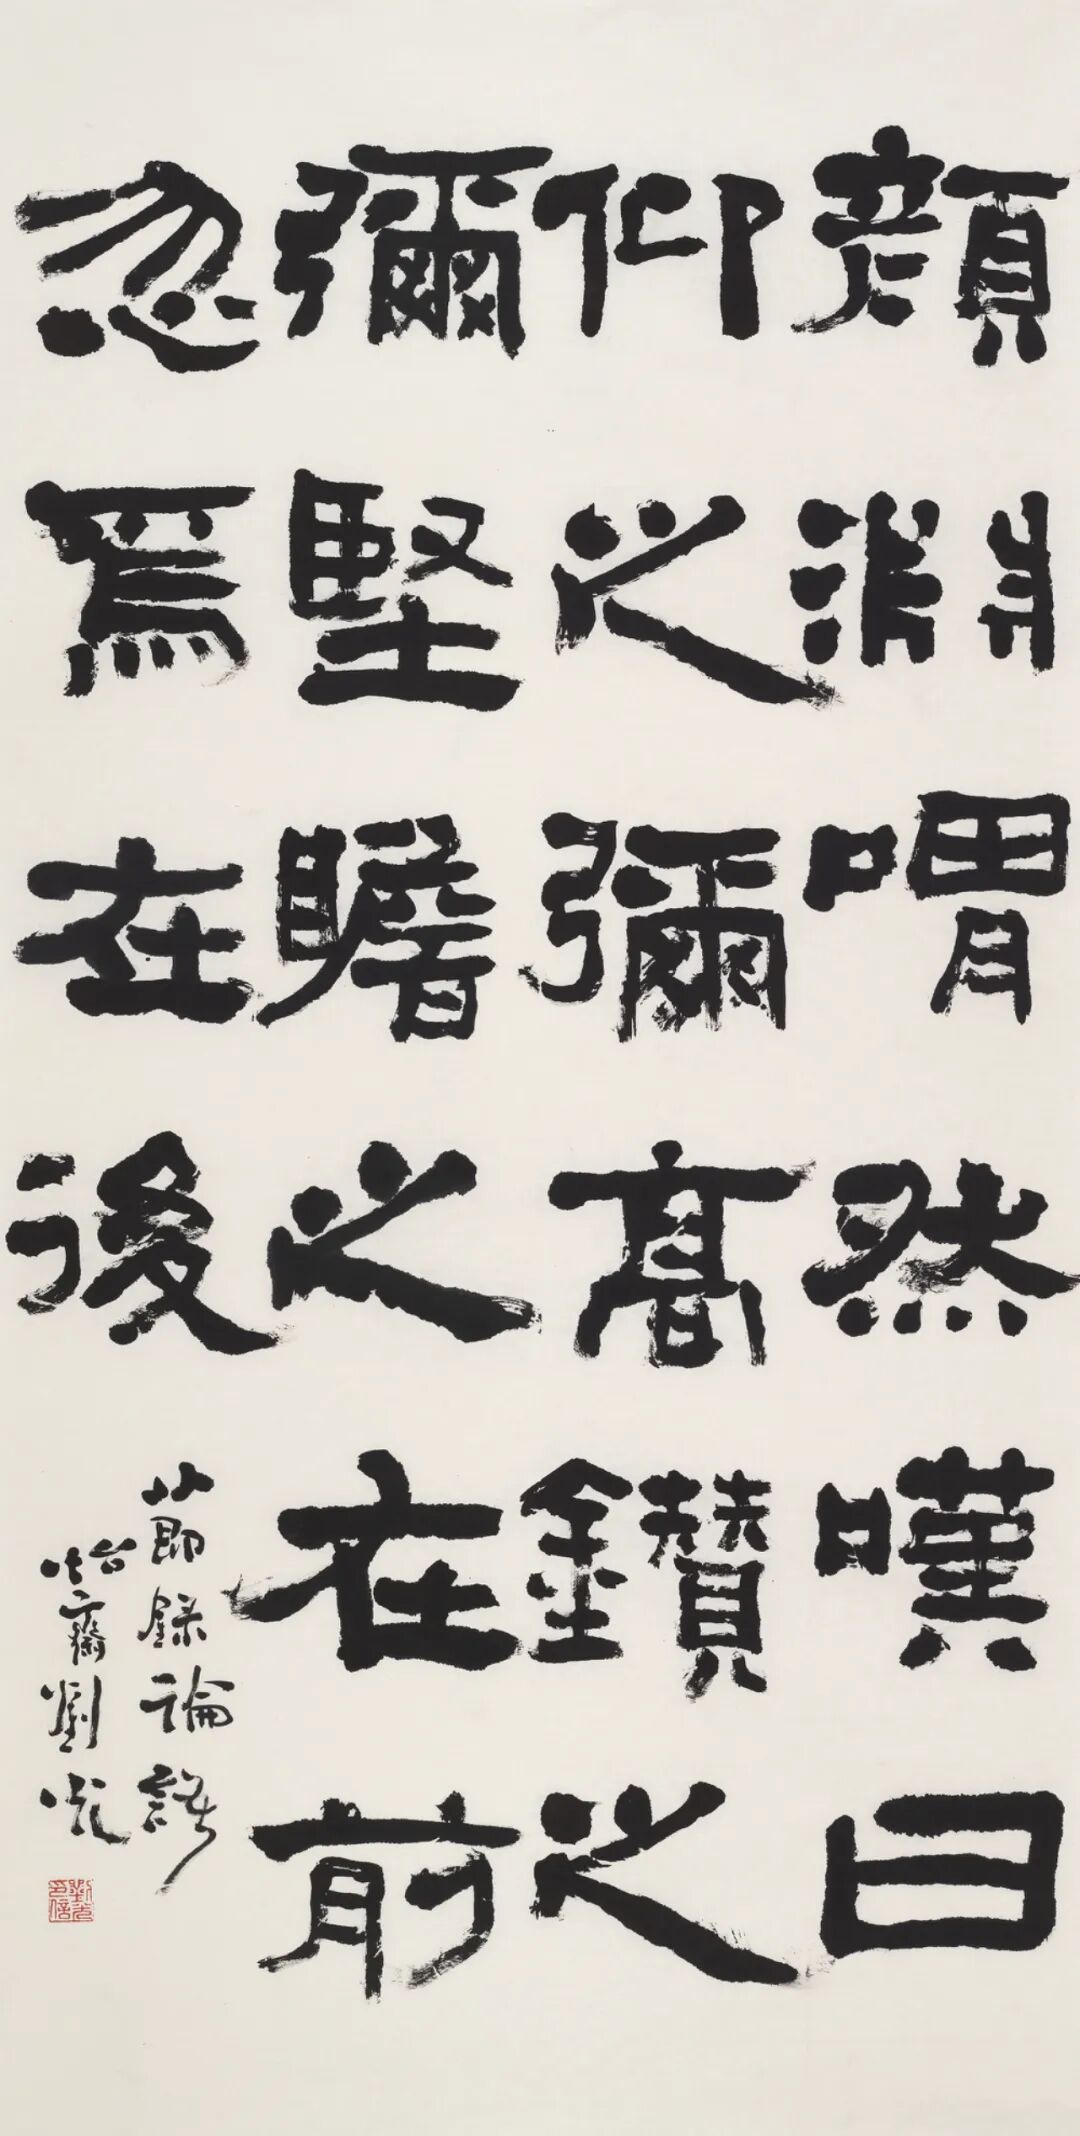 顏淵喟然嘆曰
仰之彌高鑽之
彌堅瞻之在前
忽焉在後
節錄論語
怡齋劉炭